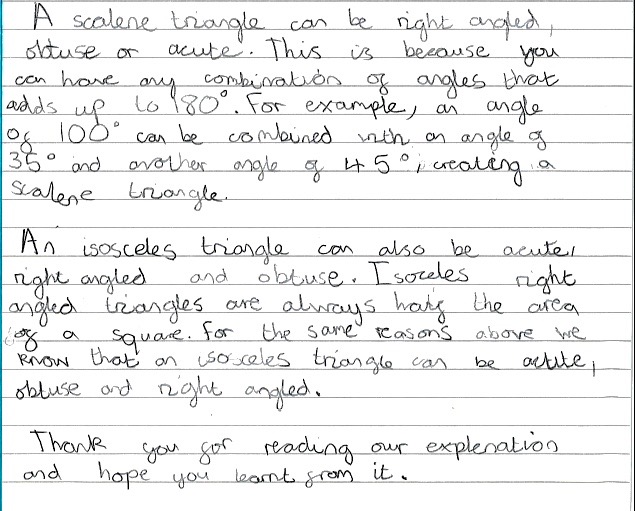 A scalene triangle can be right angled,
obtuse or acute. This is because you
can have any combination of angles that
adds up to 180°. For example, an angle
of 100° can be combined with an angle of
35° and another angle of 45°, creating a
scalene triangle.
An isosceles triangle can also be acute,
right angled and obtuse. Isoceles right
angled triangles are always half the area
of a square. For the same reasons above we
know that an isosceles triangle can be acute,
obtuse and right angled.
Thank you for reading our explenation
and hope you learnt from it.